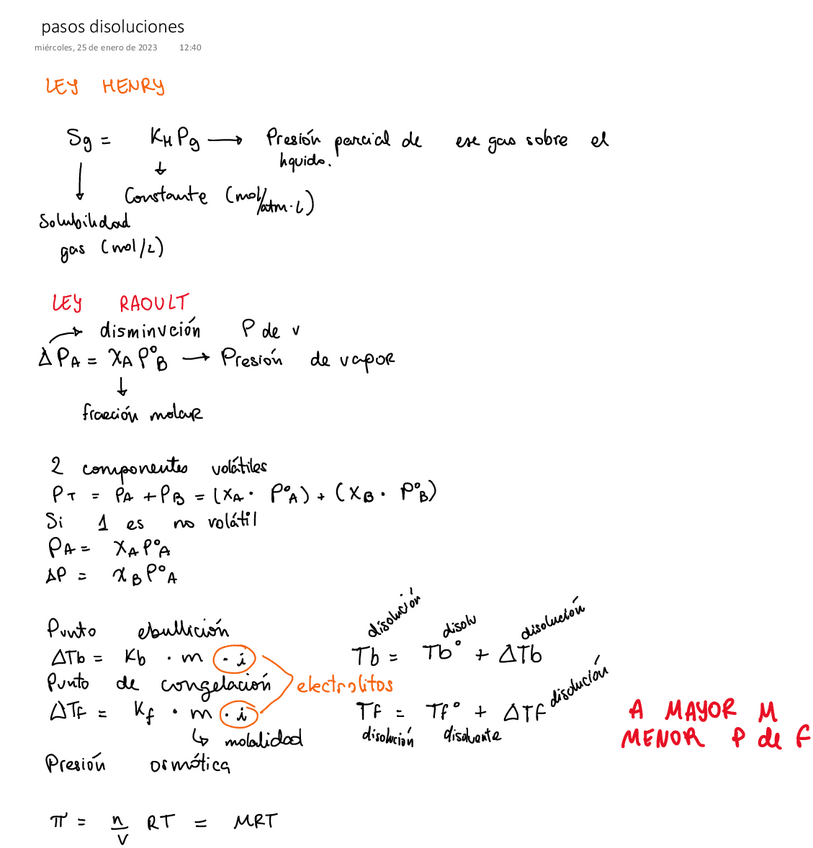 pasos disoluciones
miércoles, 25 de enero de 2023 12:40
LEY HENRY
Sg = KH Pg → Presión parcial de ese gas sobre el
líquido.
↓ ↓
Constante (mol/atm·L)
Solubilidad
gas (mol/L)
LEY RAOULT
→ disminución P de v
ΔPA = XA P°B → Presión de vapor
↓
fracción molar
2 componentes volátiles
PT = PA + PB = (XA · P°A) + (XB · P°B)
Si 1 es no volátil
PA = XA P°A
ΔP = XB P°A
Punto ebullición
ΔTb = Kb · m · i
Punto de congelación
ΔTf = Kf · m · i
electrolitos
↳ molalidad
disolución disolv disolución
Tb = Tb° + ΔTb
Tf = Tf° + ΔTf disolución
disolución disolvente
A MAYOR M
MENOR P de F
Presión osmótica
π = n/V RT = MRT